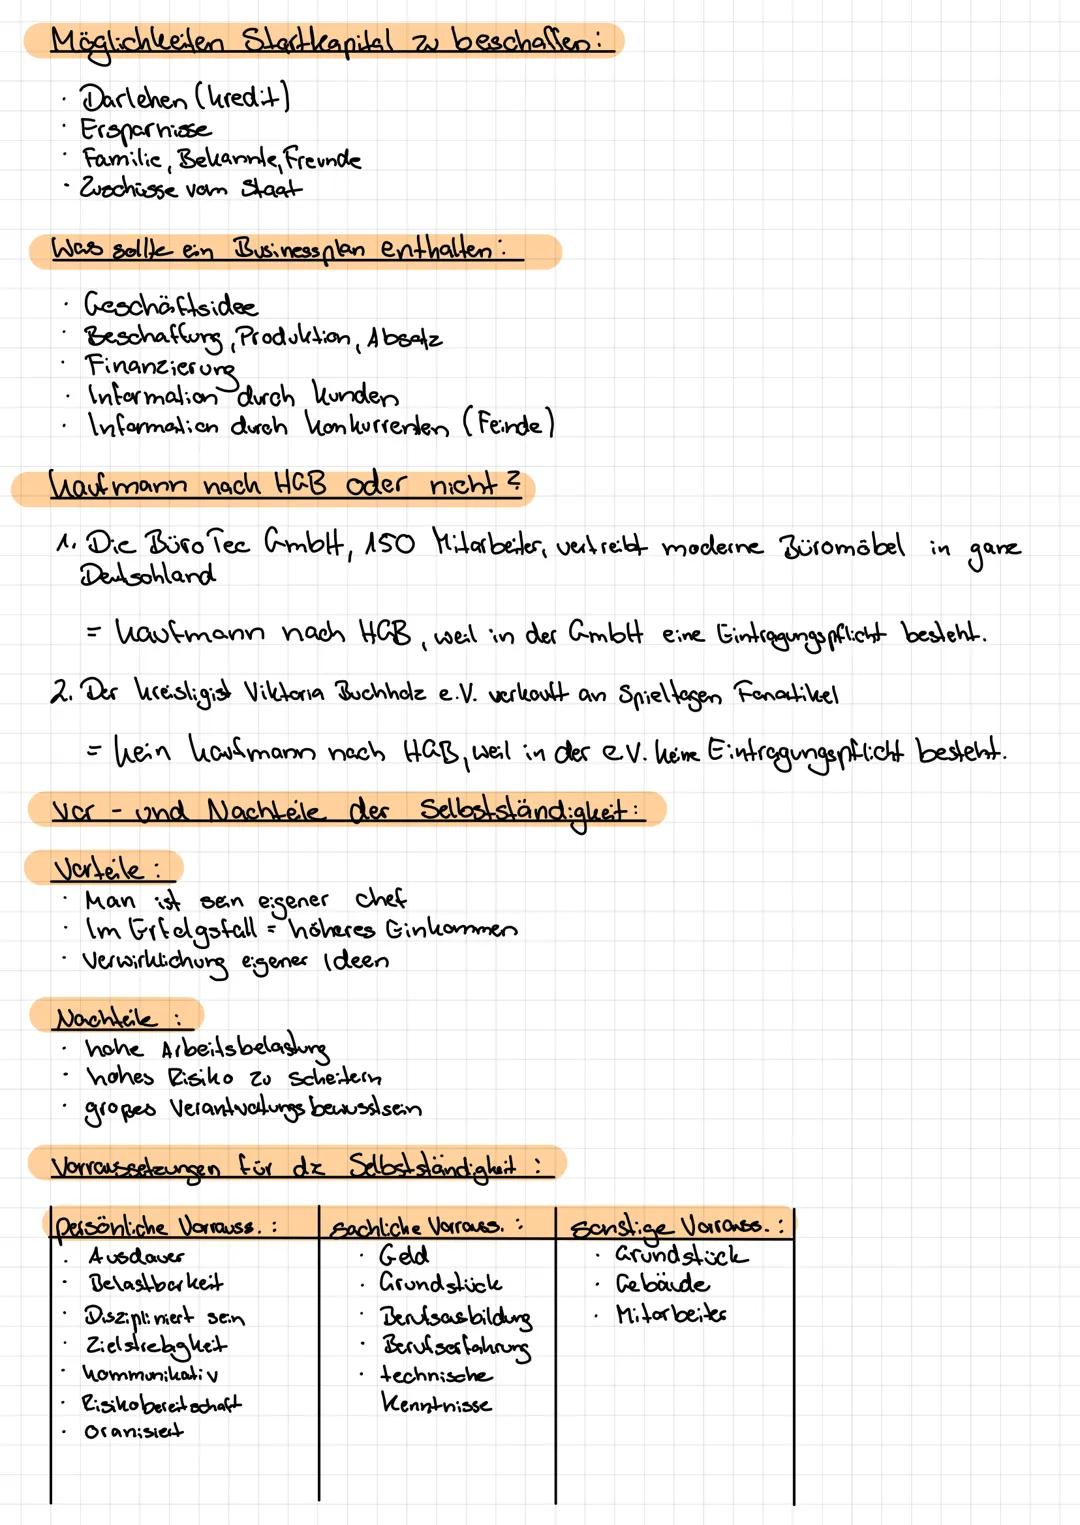 Möglichkeiten Startkapital zu beschaffen:
· Darlehen (Kredit)
· Ersparnisse
· Familie, Bekannte, Freunde
· Zuschüsse vom Staat
Was sollte ein Businessplan enthalten:
· Geschäftsidee
· Beschaffung, Produktion, Absatz
· Finanzierung
· Information durch Kunden
· Information durch Konkurrenten (Feinde)
Kaufmann nach HGB oder nicht?
1. Die BüroTec GmbH, 150 Mitarbeiter, vertreibt moderne Büromöbel in ganz
Deutschland
= Kaufmann nach HGB, weil in der GmbH eine Eintragungspflicht besteht.
2. Der Kreisligist Viktoria Buchholz e.V. verkauft an Spieltagen Fanartikel
= kein Kaufmann nach HGB, weil in der e.V. keine Eintragungspflicht besteht.
Vor- und Nachteile der Selbstständigkeit:
Vorteile:
· Man ist sein eigener Chef
· Im Erfolgsfall = höheres Einkommen
· Verwirklichung eigener Ideen
Nachteile:
· hohe Arbeitsbelastung
· hohes Risiko zu scheitern
· großes Verantwotungsbewusstsein
Vorraussetzungen für die Selbstständigkeit:
persönliche Vorrauss.: sachliche Vorrauss.: sonstige Vorrauss.:
· Ausdauer · Geld · Grundstück
· Belastbarkeit · Grundstück · Gebäude
· Diszipliniert sein · Berufsausbildung · Mitarbeiter
· Zielstrebigkeit · Berufserfahrung
· Kommunikativ · technische
· Risikobereitschaft Kenntnisse
· Oranisiert